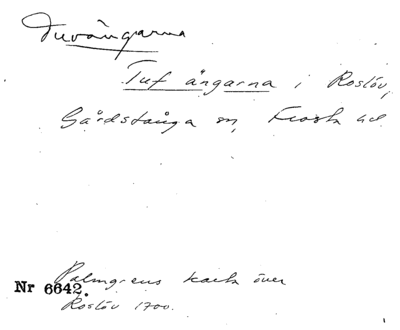 Tuvängarna
Tuf ängarna i Roslöv,
Gårdstånga sn, Frosta hd
Palmgrens karta över
Nr 6642.
Roslöv 1700.